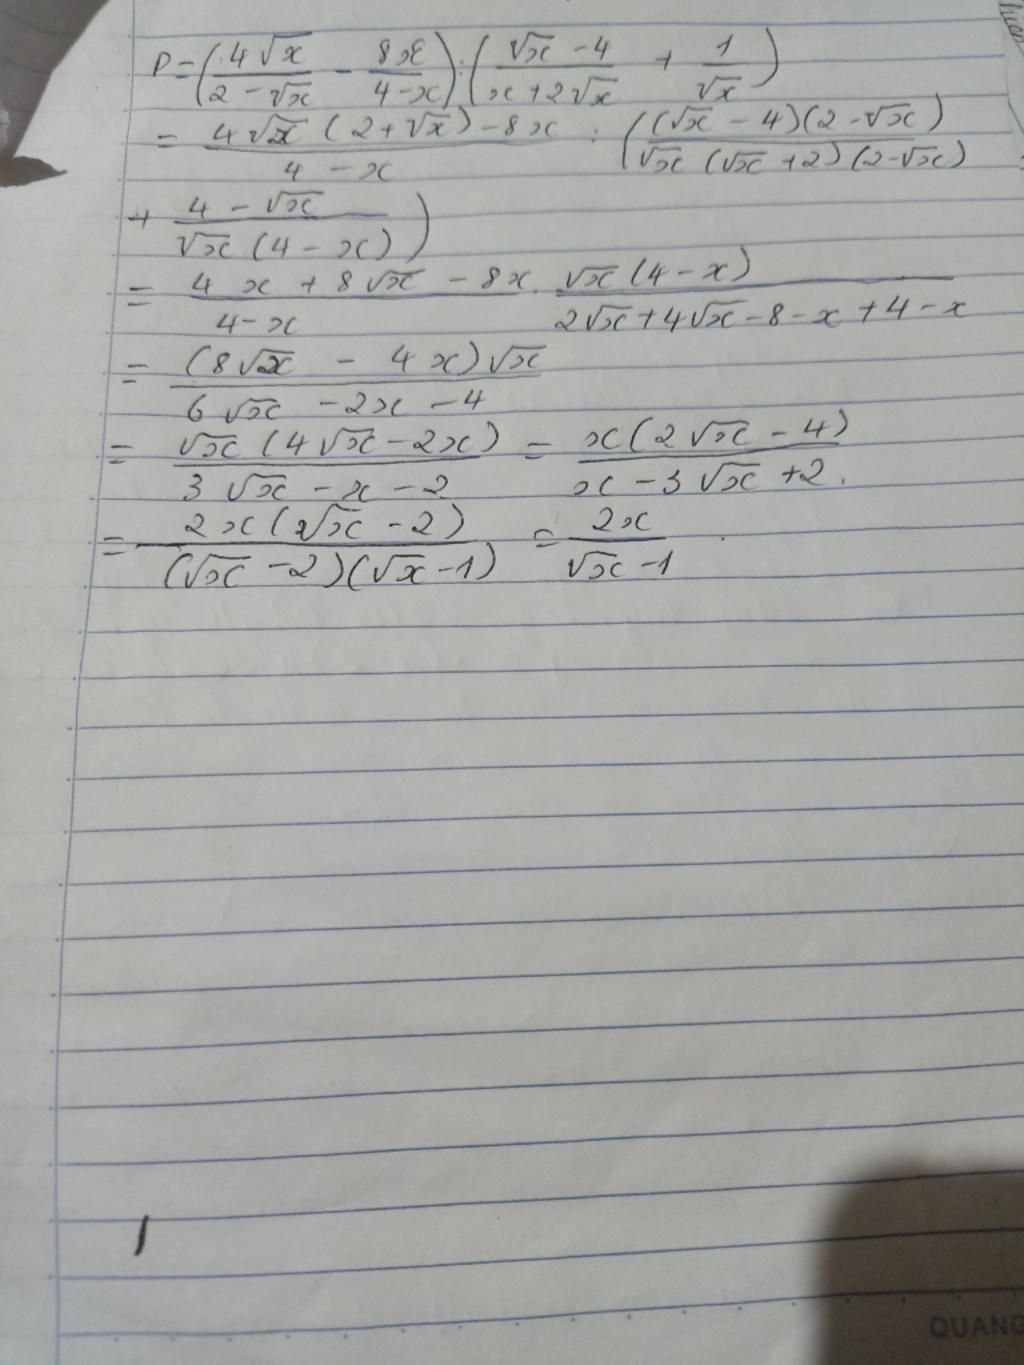 P = (4√x / 2 - √x - 8x / 4 - x) : (√x - 4 / x + 2√x + 1 / √x)
= 4√x (2 + √x) - 8x / 4 - x : ((√x - 4)(2 - √x) / √x (√x + 2)(2 - √x)
+ 4 - √x / √x (4 - x))
= 4x + 8√x - 8x / 4 - x . √x (4 - x) / 2√x + 4√x - 8 - x + 4 - x
= (8√x - 4x)√x / 6√x - 2x - 4
= √x (4√x - 2x) / 3√x - x - 2 = x(2√x - 4) / x - 3√x + 2.
= 2x(√x - 2) / (√x - 2)(√x - 1) = 2x / √x - 1
QUANG